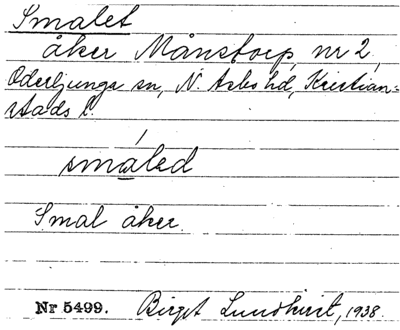 Smalet
åker Månstorp, nr 2,
Oderljunga sn, N. Åsbo hd, Kristian=
stads l.
småled
Smal åker.
Nr 5499. Birgit Lundkvist, 1938.